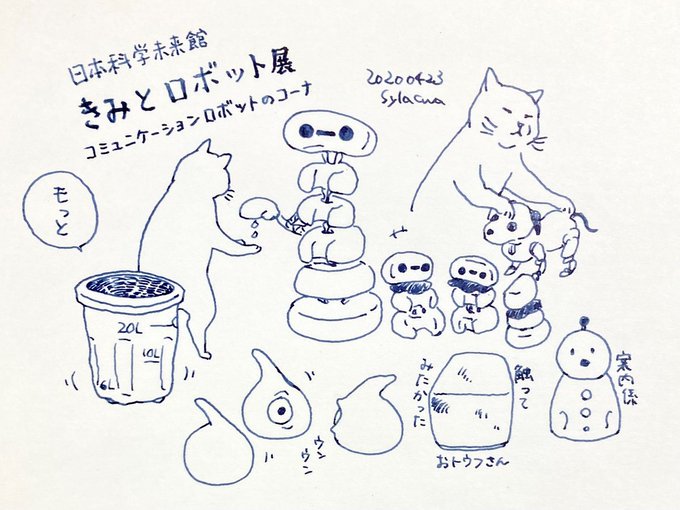 日本科学未来館
きみとロボット展
コミュニケーションロボットのコーナ
20200423
Sylacua
もっと
20L
10L
6L
ウンウン
触って
みたかった
おトウフさん
案内係